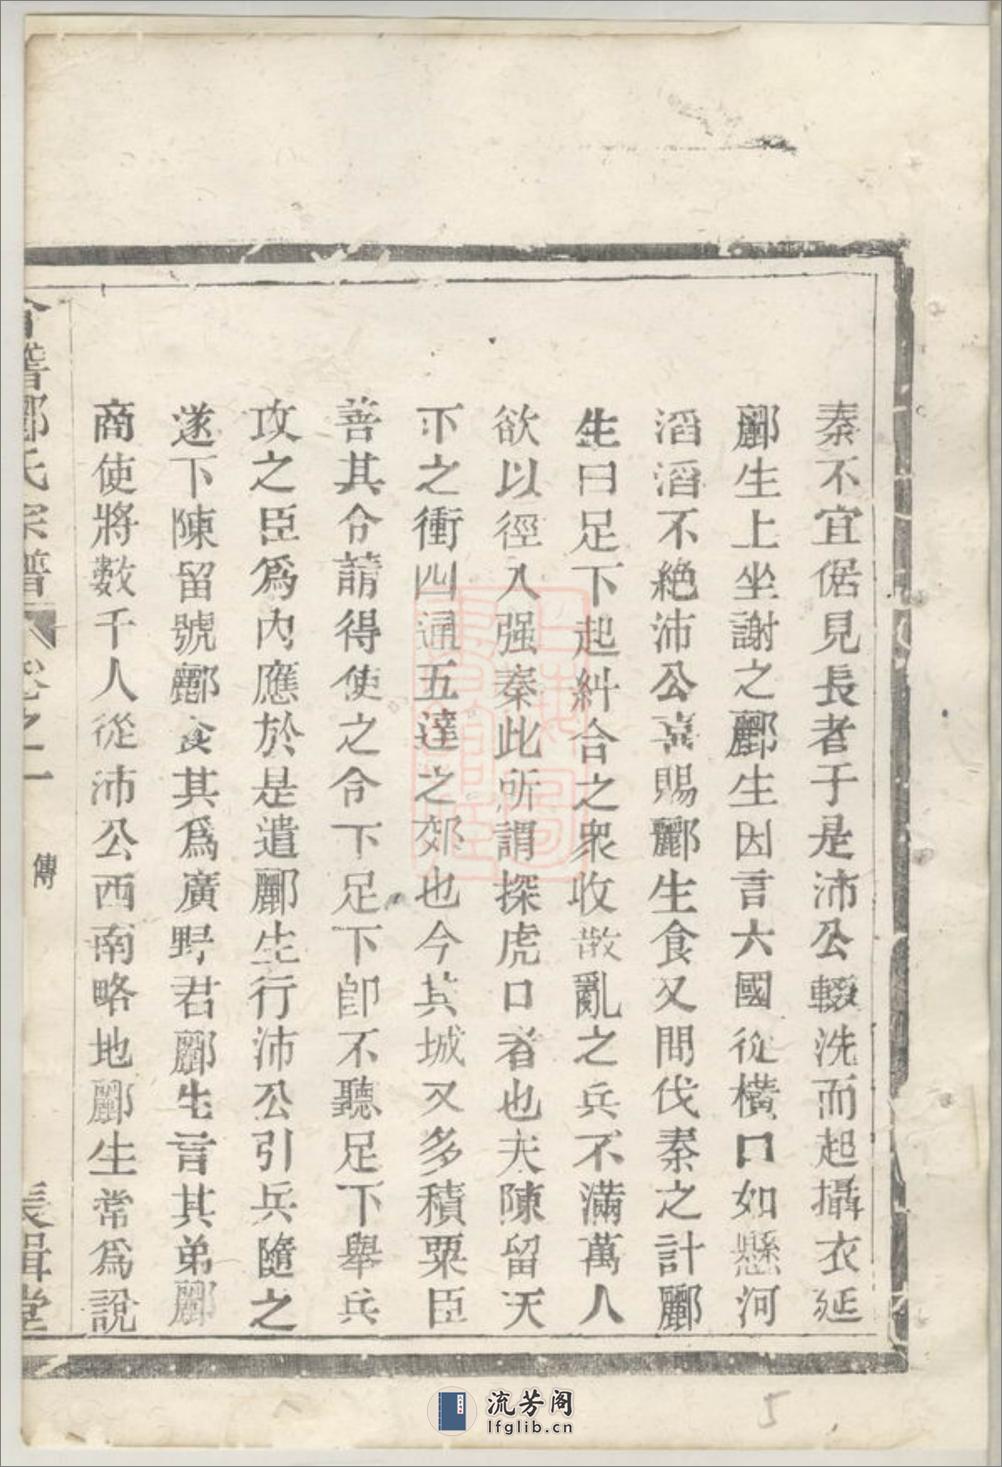 秦不宜倨見長者于是沛公輟洗而起攝衣延
酈生上坐謝之酈生因言六國從橫口如懸河
滔滔不絶沛公喜賜酈生食又問伐秦之計酈
生曰足下起糾合之衆收散亂之兵不滿萬人
欲以徑入强秦此所謂探虎口者也夫陳留天
下之衝四通五達之郊也今其城又多積粟臣
善其令請得使之令下足下卽不聽足下舉兵
攻之臣爲內應於是遣酈生行沛公引兵隨之
遂下陳留號酈食其爲廣野君酈生言其弟酈
商使將數千人從沛公西南略地酈生常爲說
酈氏宗譜 卷之一 傳 長耤堂
5
流芳阁
lfglib.cn